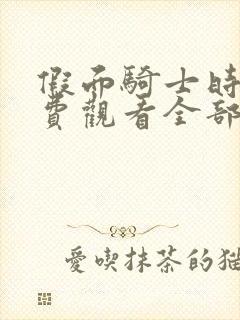 假而騎士時
費觀看全部
愛喫抹茶的猫